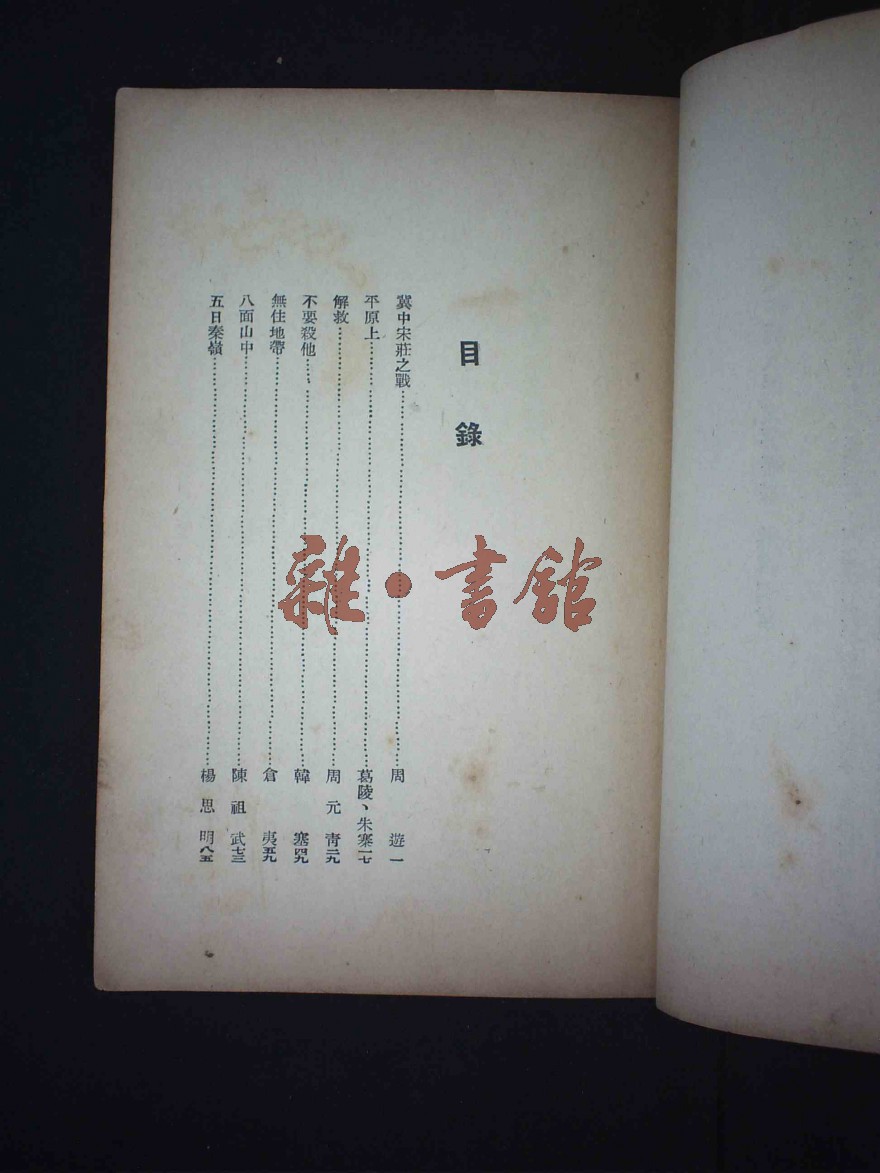 目錄
冀中宋莊之戰……周遊 一
平原上……葛陵、朱寨 一七
解救……周元青 二九
不要殺他……韓塞 四九
無住地帶……倉夷 五九
八面山中……陳祖武 七三
五日秦嶺……楊思明 八五
雜·書館